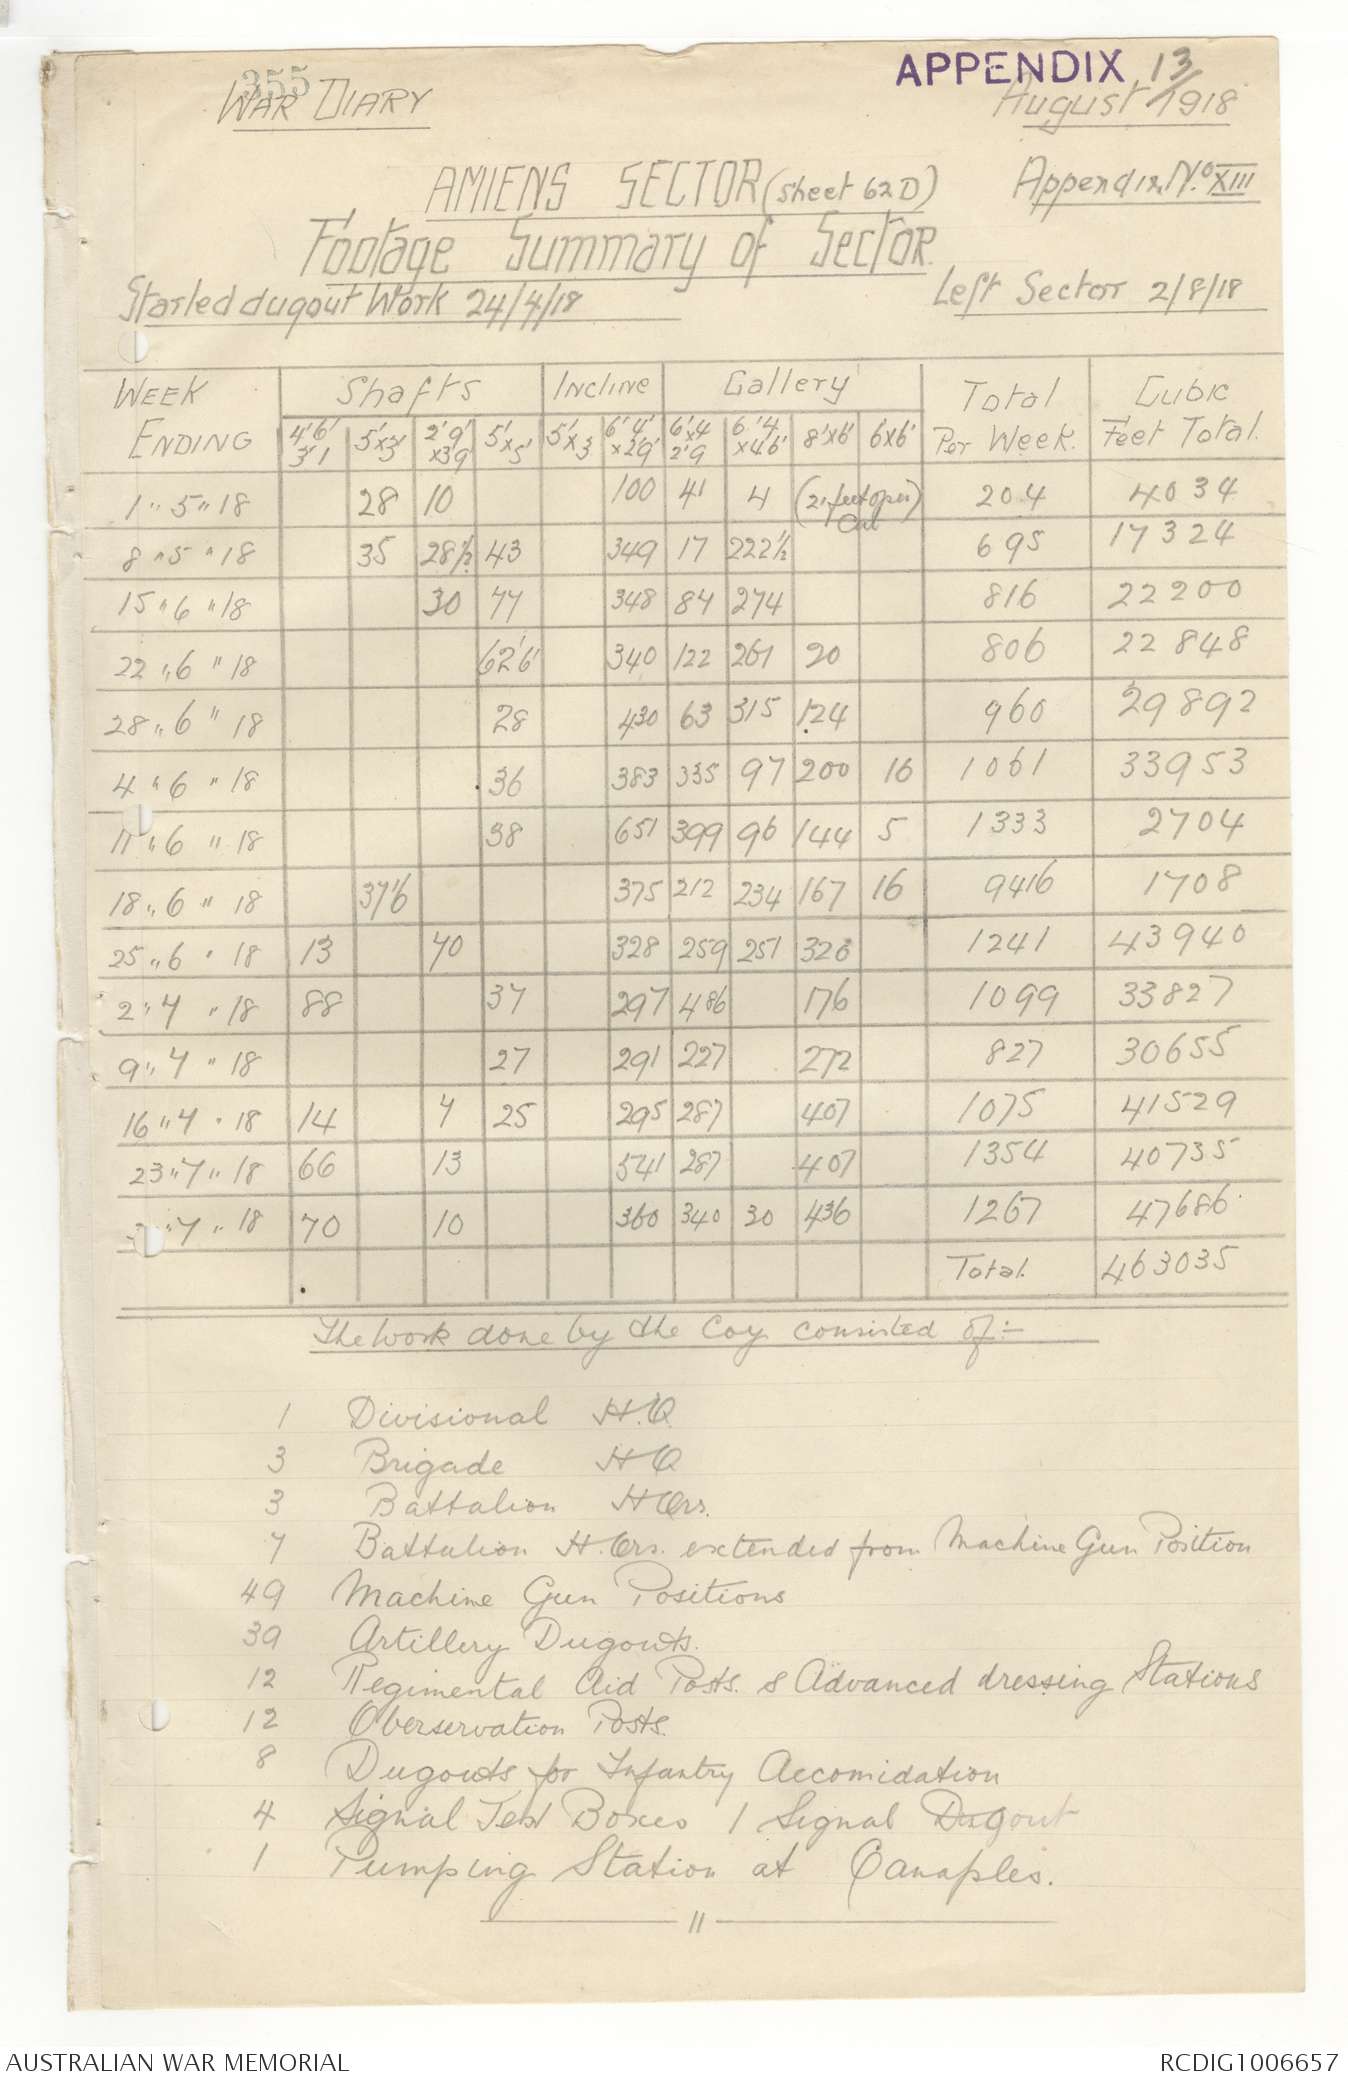 355
APPENDIX 13
WAR DIARY
August 1918
AMIENS SECTOR (sheet 62D)
Appendix No XIII
Footage Summary of Sector.
Started dugout Work 24/4/18
Left Sector 2/8/18
WEEK ENDING | Shafts | Incline | Gallery | Total Per Week. | Cubic Feet Total.
4'6' 3'1 | 5'x3' | 2'9' x39 | 5'x5' | 5'x3 | 6'4' x2'9' | 6'x4 2'9 | 6'4 x46' | 8'x6' | 6x6'
1 " 5 " 18 | 28 | 10 | 100 | 41 | 4 | (21 feet open) Cut | 204 | 4034
8 " 5 " 18 | 35 | 28½ | 43 | 349 | 17 | 222½ | 695 | 17324
15 " 6 " 18 | 30 | 77 | 348 | 84 | 274 | 816 | 22200
22 " 6 " 18 | 62'6' | 340 | 122 | 261 | 20 | 806 | 22848
28 " 6 " 18 | 28 | 430 | 63 | 315 | 124 | 960 | 29892
4 " 6 " 18 | 36 | 383 | 335 | 97 | 200 | 16 | 1061 | 33953
11 " 6 " 18 | 38 | 651 | 399 | 96 | 144 | 5 | 1333 | 2704
18 " 6 " 18 | 37'6 | 375 | 212 | 234 | 167 | 16 | 9416 | 1708
25 " 6 " 18 | 13 | 70 | 328 | 259 | 251 | 326 | 1241 | 43940
2 " 7 " 18 | 88 | 37 | 297 | 486 | 176 | 1099 | 33827
9 " 7 " 18 | 27 | 291 | 227 | 272 | 827 | 30655
16 " 7 " 18 | 14 | 7 | 25 | 295 | 287 | 407 | 1075 | 41529
23 " 7 " 18 | 66 | 13 | 541 | 287 | 407 | 1354 | 40735
" 7 " 18 | 70 | 10 | 360 | 340 | 30 | 436 | 1267 | 47686
Total. | 463035
The work done by the Coy consisted of:-
1 Divisional H.Q.
3 Brigade HQ
3 Battalion HQrs.
7 Battalion H.Qrs. extended from Machine Gun Position
49 Machine Gun Positions
39 Artillery Dugouts.
12 Regimental Aid Posts. & Advanced dressing Stations
12 Oberservation Posts.
8 Dugouts for Infantry Accomidation
4 Signal Test Boxes 1 Signal Dugout
1 Pumping Station at Canaples.
11
AUSTRALIAN WAR MEMORIAL
RCDIG1006657